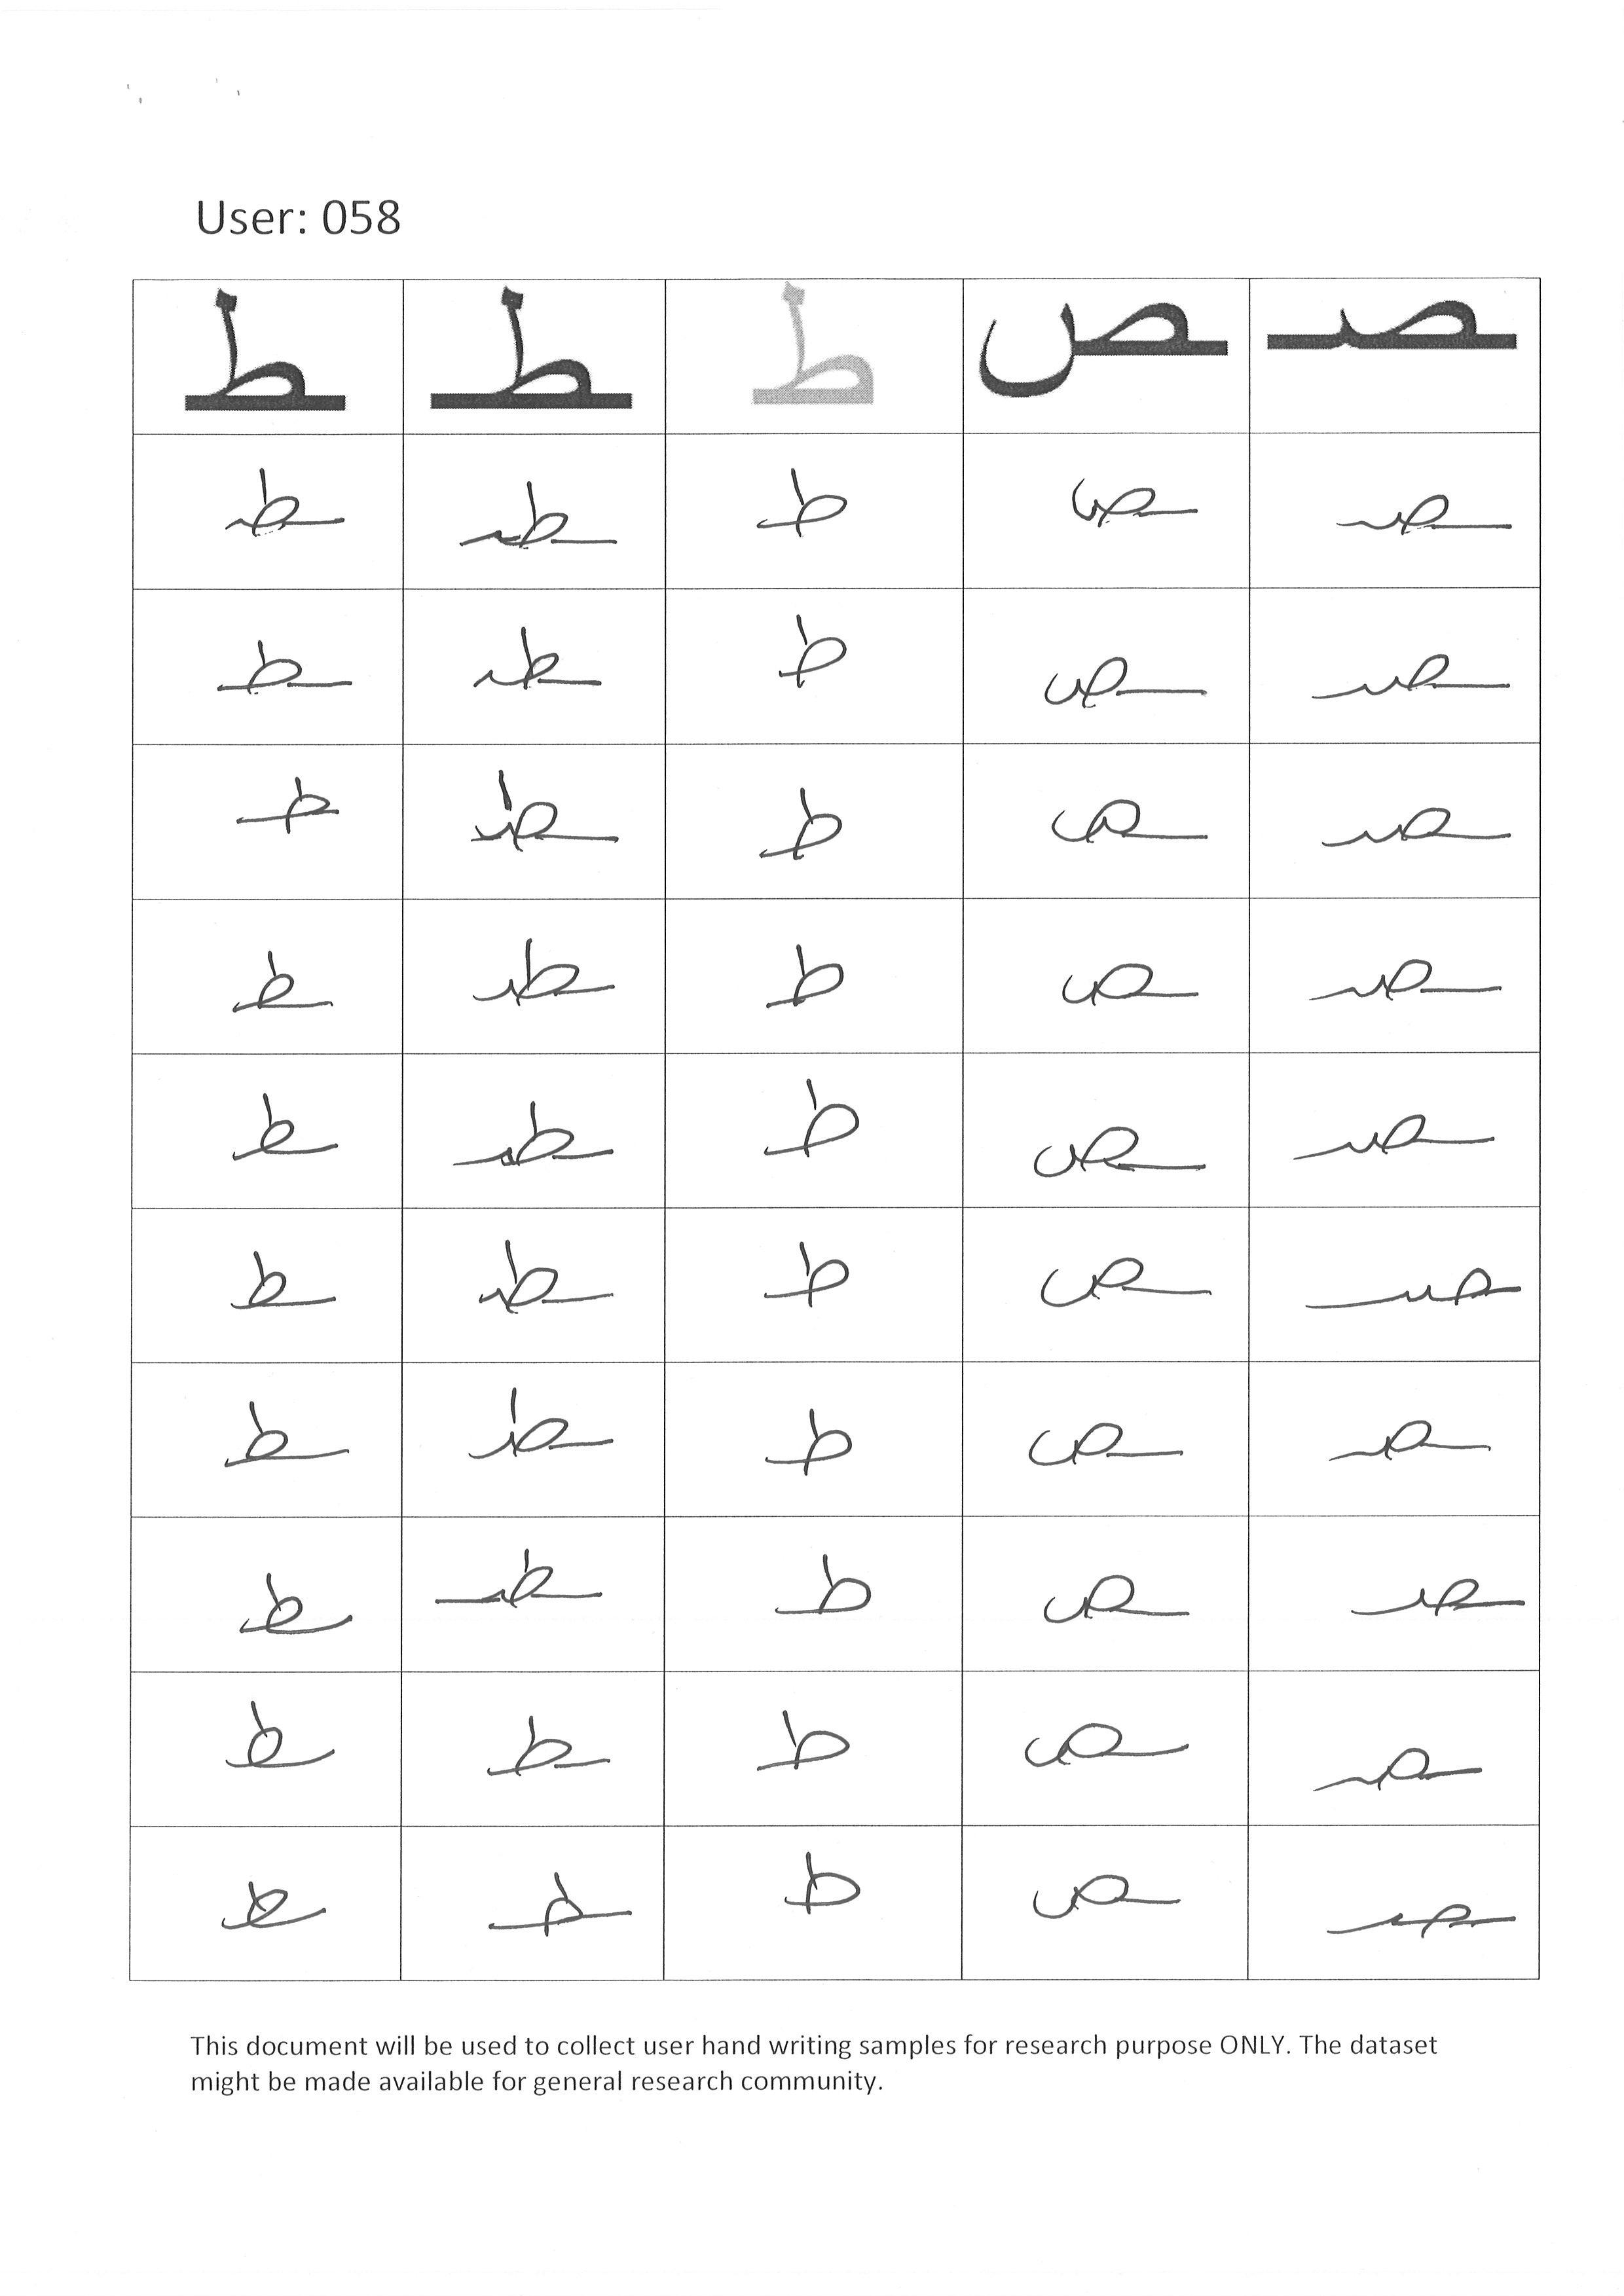 User: 058
ـصـ ـص ط ـطـ ـط
ـصـ ـص ط ـطـ ـط
ـصـ ـص ط ـطـ ـط
ـصـ ـص ط ـطـ ـط
ـصـ ـص ط ـطـ ـط
ـصـ ـص ط ـطـ ـط
ـصـ ـص ط ـطـ ـط
ـصـ ـص ط ـطـ ـط
ـصـ ـص ط ـطـ ـط
ـصـ ـص ط ـطـ ـط
ـصـ ـص ط ـطـ ـط
This document will be used to collect user hand writing samples for research purpose ONLY. The dataset
might be made available for general research community.